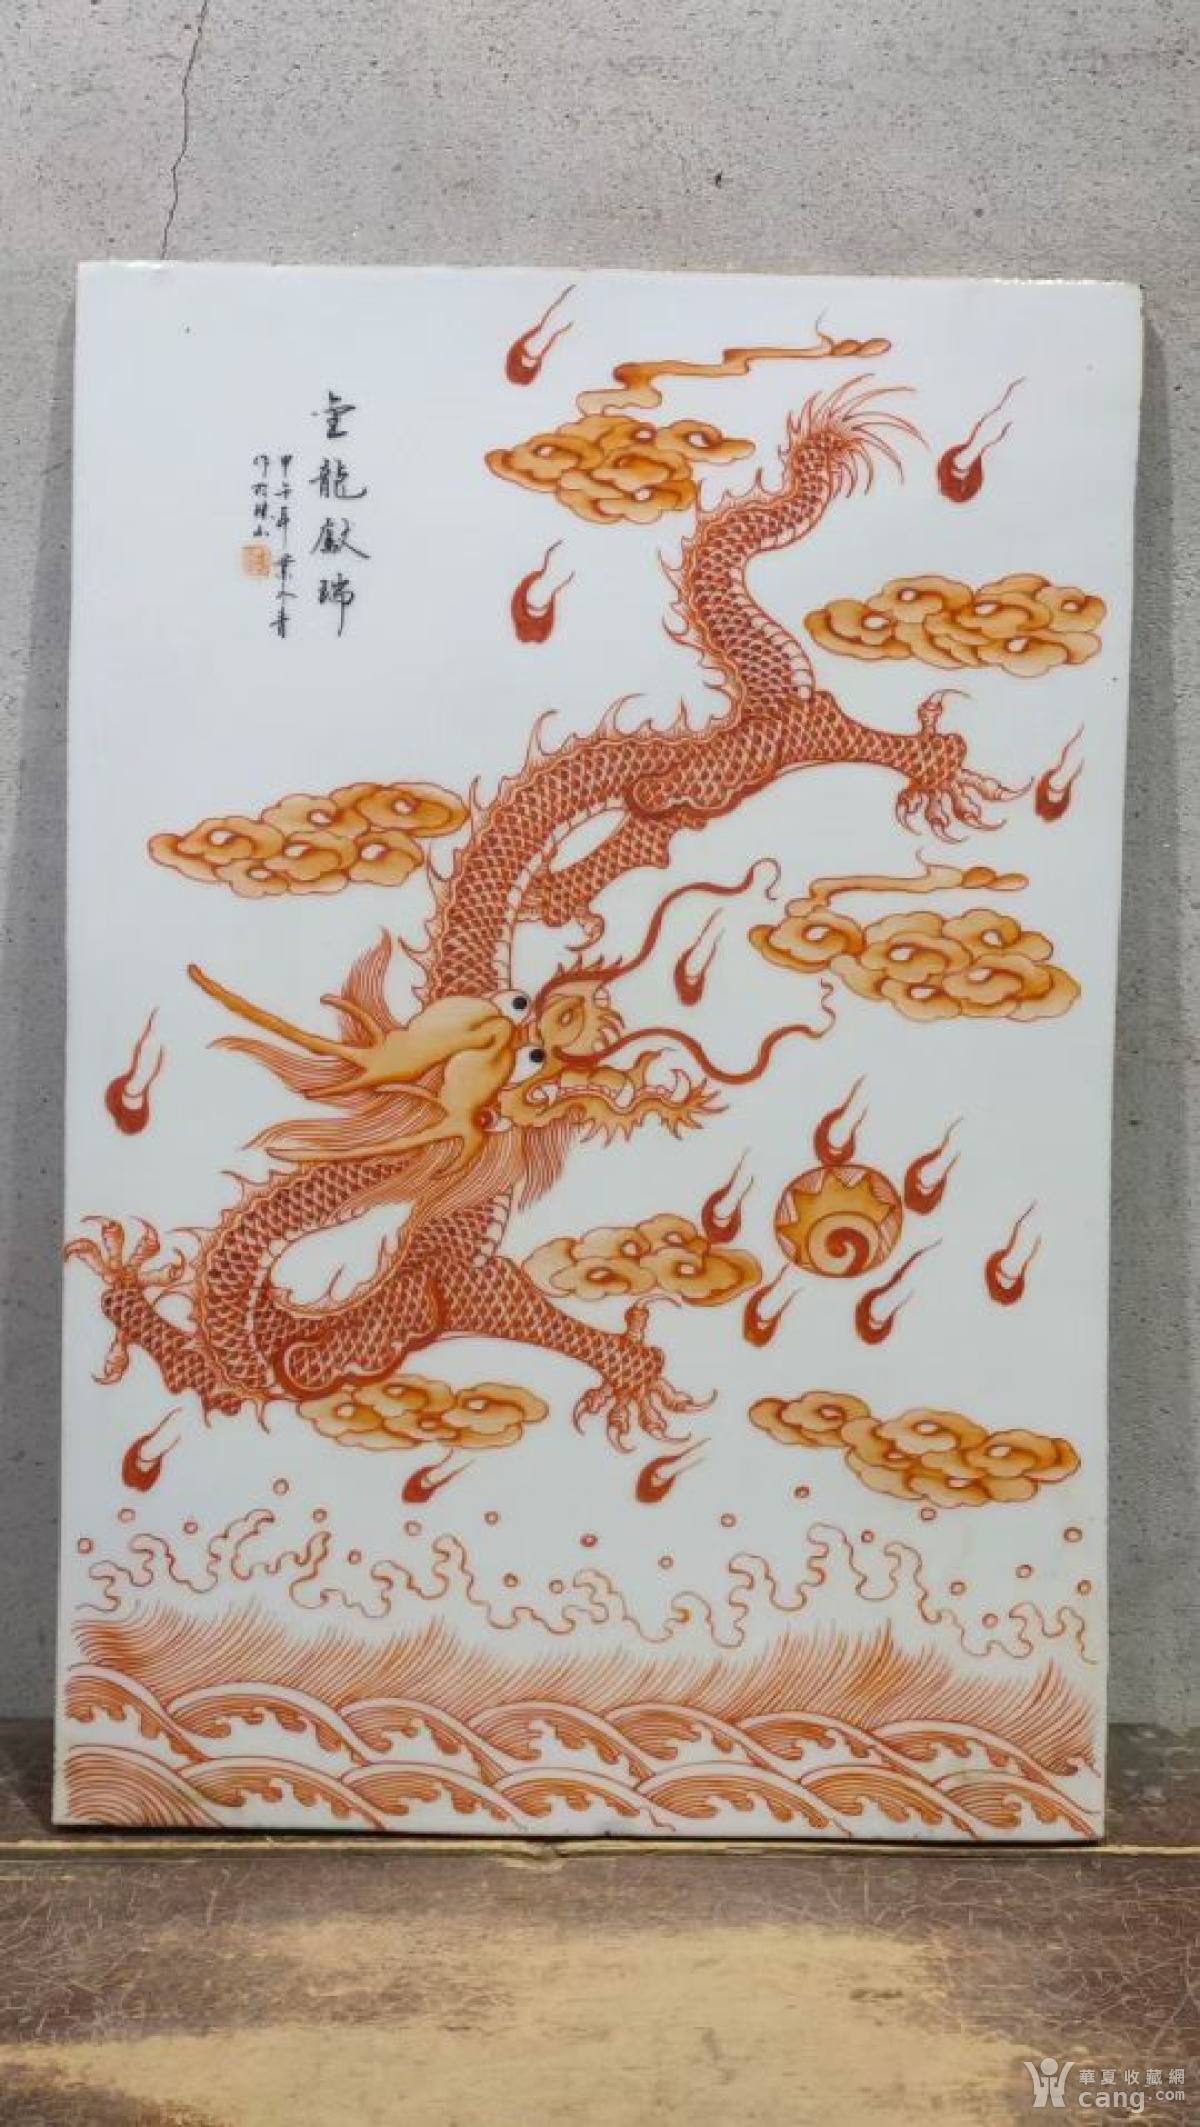 金龍獻瑞
甲午年葉人青
作於珠山
華夏收藏網
cang.com